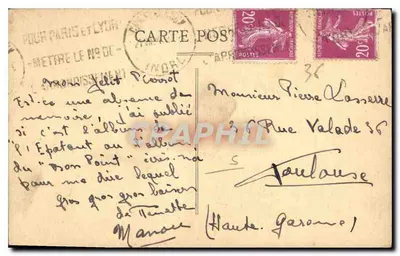 POUR PARIS ET LYON
- METTRE LE No DE -
L'ARRONDISSEMENT
INDRE
CARTE POSTALE
20c POSTES
20c
Mon Petit Pierrot
Est-ce une absence de
mémoire, j'ai oublié
si c'est l'album de
"l'Epatant ou l'album
du "Bon Point" écris-moi
pour me dire lequel
gros gros gros baisers
de Tinette
Manou
36
Monsieur Pierre Lasserre
36 Rue Valade 36
S
Toulouse
(Haute. Garonne)
CPHRIL